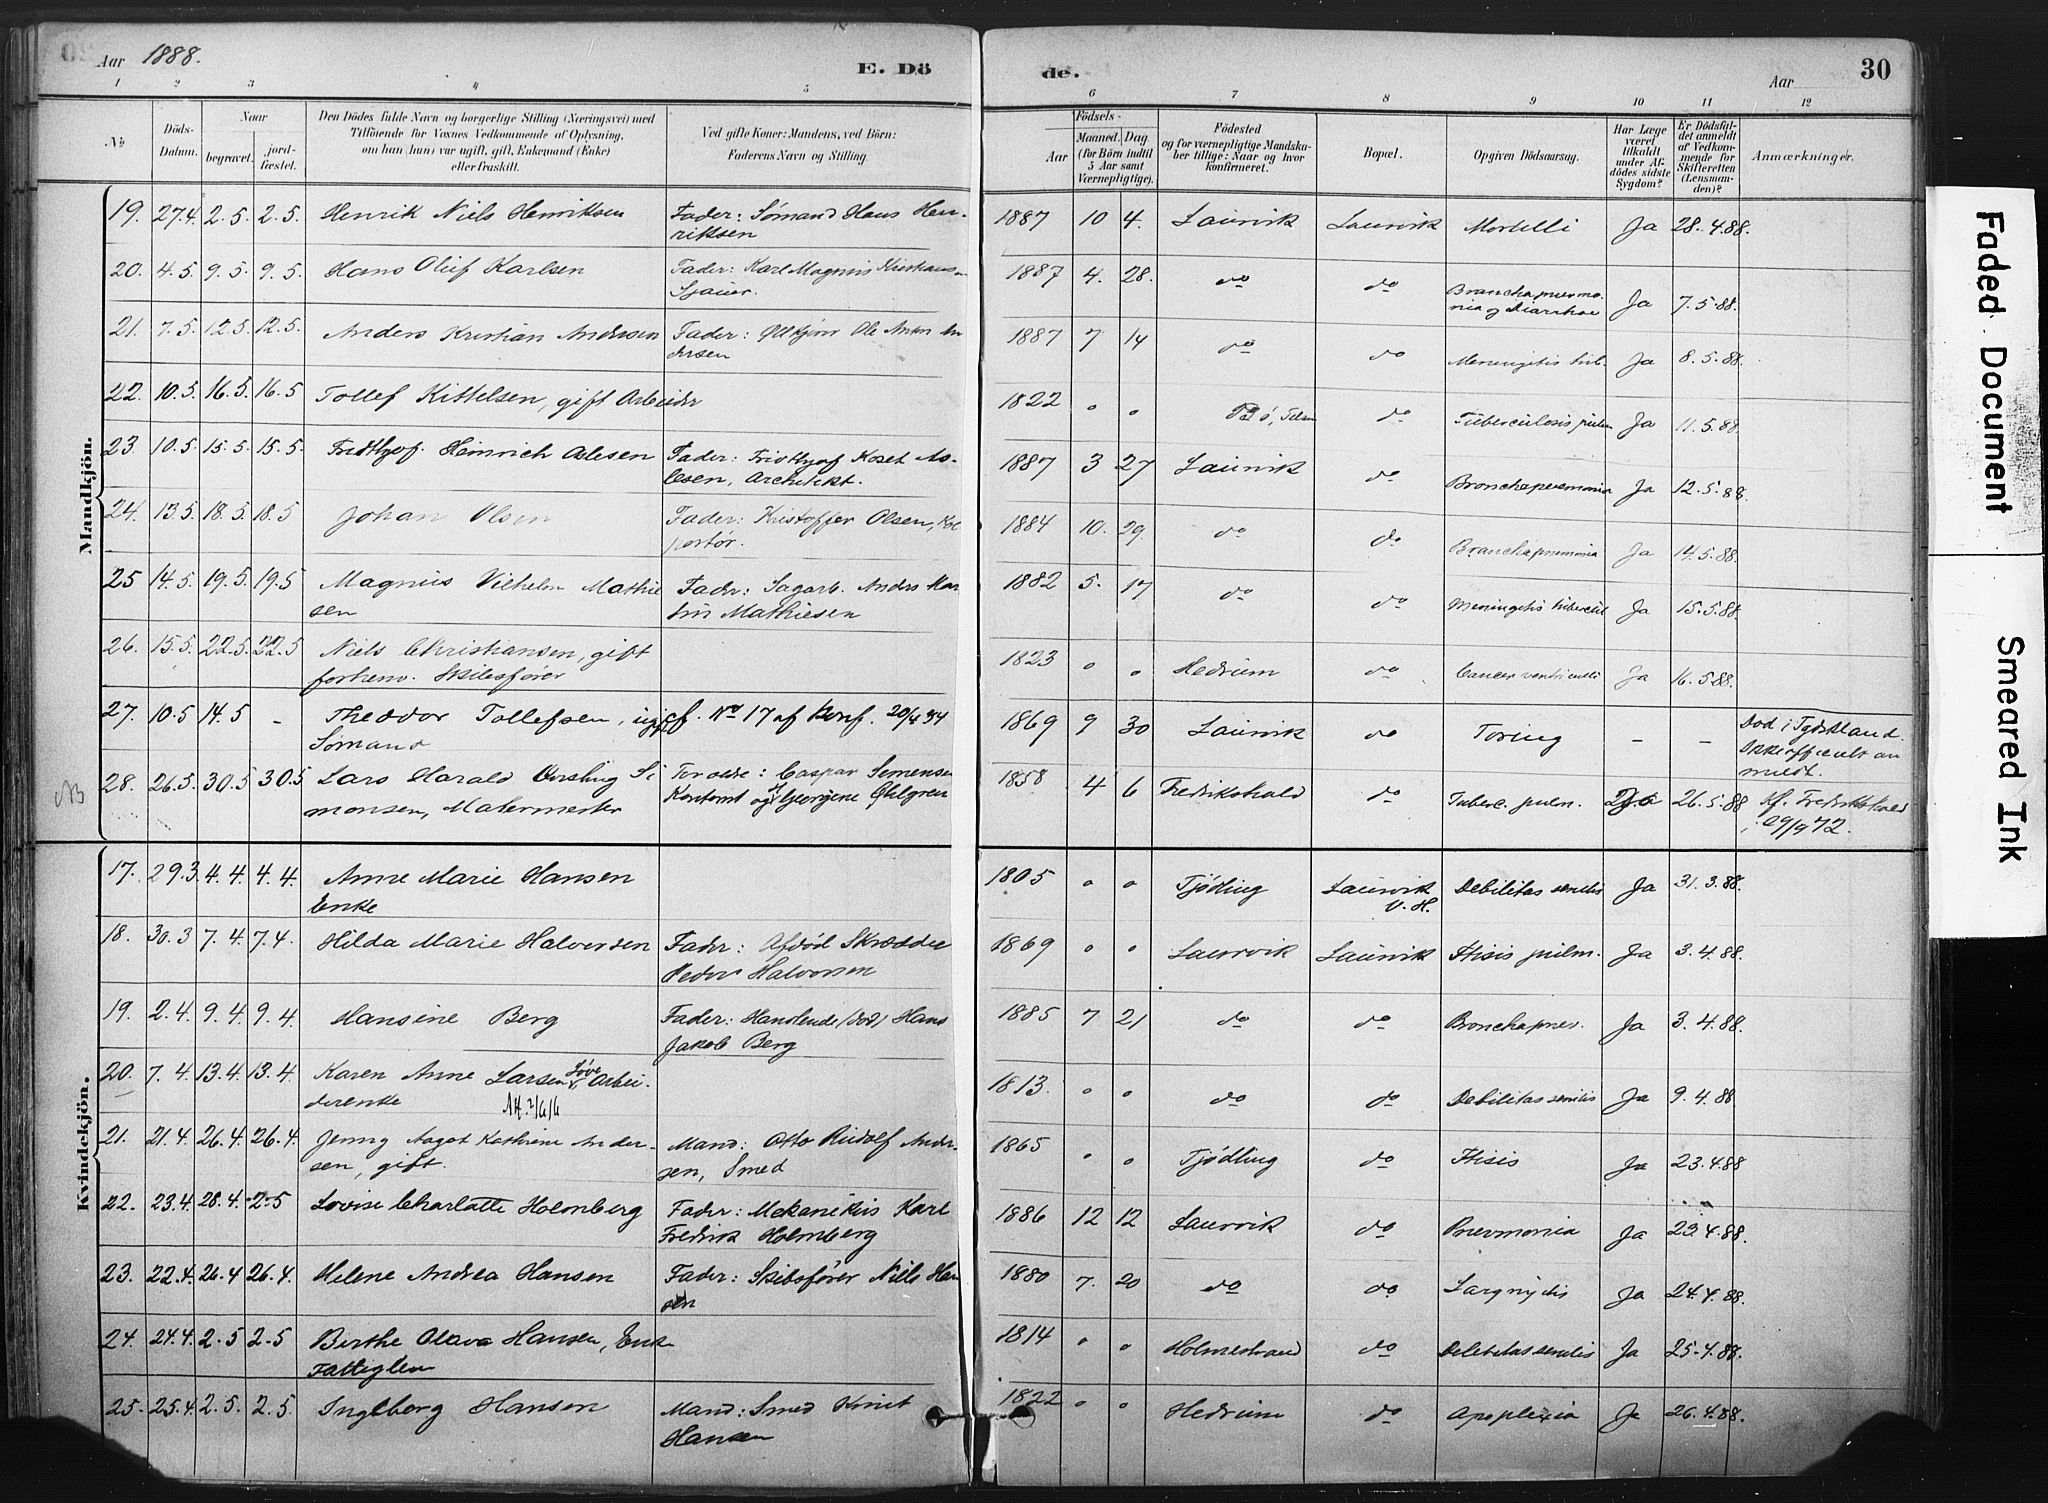 Aar 1888.
E. Dö
de.
Aar
30
1 2 3 4 5
6 7 8 9 10 11 12
No
Döds-Datum.
Naar
begravet.
jord-fæstet.
Den Dödes fulde Navn og borgerlige Stilling (Næringsvei) med
Tilföiende for Voxnes Vedkommende af Oplysning,
om han (hun) var ugift, gift, Enkemand (Enke)
eller fraskilt.
Ved gifte Koner: Mandens, ved Börn:
Faderens Navn og Stilling.
Födsels-
Aar
Maaned. Dag
(for Börn indtil
5 Aar samt
Værnepligtige).
Födested
og for værnepligtige Mandska-
ber tillige: Naar og hvor
konfirmeret.
Bopæl.
Opgiven Dödsaarsag.
Har Læge
været
tilkaldt
under Af-
dödes sidste
Sygdom?
Er Dödsfal-
det anmeldt
af Vedkom-
mende for
Skifteretten
(Lensman-
den)?
Anmærkninger.
Mandkjön.
19. 27.4. 2.5. 2.5. Henrik Niels Henriksen Fader: Sømand Hans Hen-
riksen
1887 10 4. Laurvik Laurvik Morbilli Ja 28.4.88.
20. 4.5. 9.5. 9.5. Hans Oluf Karlsen Fader: Karl Magnus Kristiansen
Sjauer.
1887 4. 28. do do Bronchopnevmo-
nia og Diarrhoe Ja 7.5.88.
21. 7.5. 12.5. 12.5. Anders Kristian Andersen Fader: Ole Anton An-
dersen
1887 7 14 do do Meningitis tub. Ja 8.5.88.
22. 10.5. 16.5. 16.5 Tollef Kittelsen, gift Arbeider
1822 o o do Tuberculosis pulm Ja 11.5.88.
23. 10.5. 15.5. 15.5. Fridthjof Heinrich Aslesen Fader: Fridthjof Koset As-
lesen, Architekt.
1887 3 27 Laurvik do Bronchopnevmonia Ja 12.5.88.
24. 13.5. 18.5. 18.5 Johan Olsen Fader: Kristoffer Olsen, Kol-
portør.
1884 10. 29. do do Bronchopnevmonia Ja 14.5.88.
25 14.5. 19.5. 19.5 Magnus Vilhelm Mathie
sen Fader: Sagarb. Anders Mar-
tin Mathiesen
1882 5. 17 do do Meningitis tubercul Ja 15.5.88.
26. 15.5. 22.5. 22.5 Niels Christiansen, gift
forhenv. Skibsfører
1823 o o Hedrum do Cancer ventriculi Ja 16.5.88.
27. 10.5 14.5 - Theodor Tollefsen, ugift
Sømand cf. No 17 af Konf. 20/4 84
1869 9 30 Laurvik do Toring - - Død i Tydskland.
Ikke officielt an
meldt.
NB
28. 26.5. 30.5 30.5 Lars Harald Ørsting Si
monsen, Malermester Forældre: Caspar Simensen
Kontorist og Georgine Øhlgren
1858 4 6 Fredrikshald do Tuberc. pulm. Ja 26.5.88 Kf. Fredrikshald
29/9 72.
Kvindekjön.
17. 29.3. 4.4. 4.4. Anne Marie Hansen
Enke
1805 o o Tjødling Laurvik
V. H. Debilitas senilis Ja 31.3.88.
18. 30.3 7.4. 7.4. Hilda Marie Halvorsen Fader: Afdød Skrædder
Peder Halvorsen
1869 o o Laurvik Laurvik Ftisis pulm. Ja 3.4.88.
19. 2.4. 9.4. 9.4. Hansine Berg Fader: Handlende (død) Hans
Jakob Berg
1885 7 21 do do Bronchopnev. Ja 3.4.88.
20. 7.4. 13.4. 13.4. Karen Anne Larsen Løve Arbei-
derenke
1813. o o do do Debilitas senilis Ja 9.4.88
21. 21.4. 26.4. 26.4. Jenny Aagot Kathrine Ander-
sen, gift. Mand: Otto Rudolf Ander-
sen, Smed
1865 o o Tjødling do Ftisis Ja 23.4.88
22. 23.4. 28.4. 2.5 Lovise Charlotte Holmberg Fader: Mekanikus Karl
Fredrik Holmberg
1886 12 12 Laurvik do Pnevmonia Ja 23.4.88.
23. 22.4. 26.4 26.4. Helene Andrea Hansen Fader: Skibsfører Niels Han
sen
1880 7. 20 do do Laryngitis Ja 24.4.88.
24. 24.4. 2.5 2.5 Berthe Olava Hansen, Enke
Fattiglem
1814 o o Holmestrand do Debilitas senilis Ja 25.4.88.
25. 25.4. 2.5. 2.5. Ingeborg Hansen Mand: Smed Knut
Hansen
1822 o o Hedrum do Apoplexia Ja 26.4.88.
Faded Document
Smeared Ink